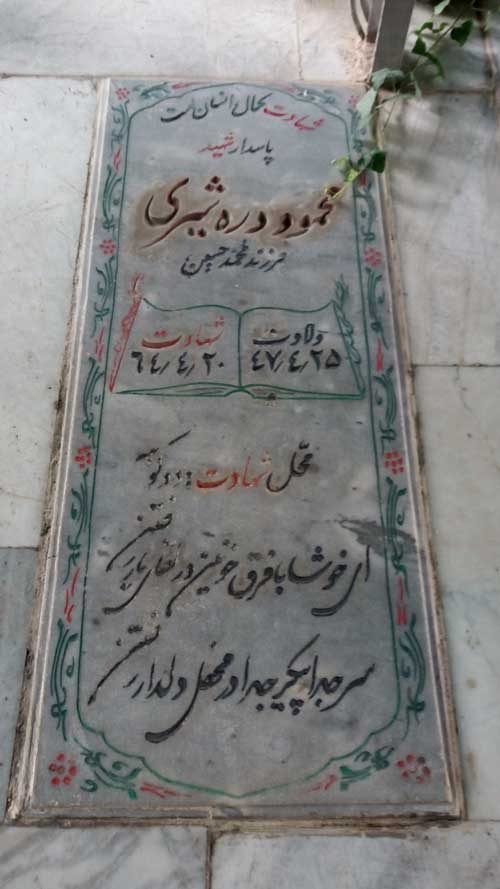 شهادت کمال انسان است
پاسدار شهید
محمود دره شیری
فرزند محمد حسین
ولادت شهادت
۴۷/۴/۲۵ ۶۴/۴/۲۰
محل شهادت: دوکوهه
ای خوشا با فرق خونین در لقای یار رفتن
سر جدا پیکر جدا در محفل دلدار رفتن